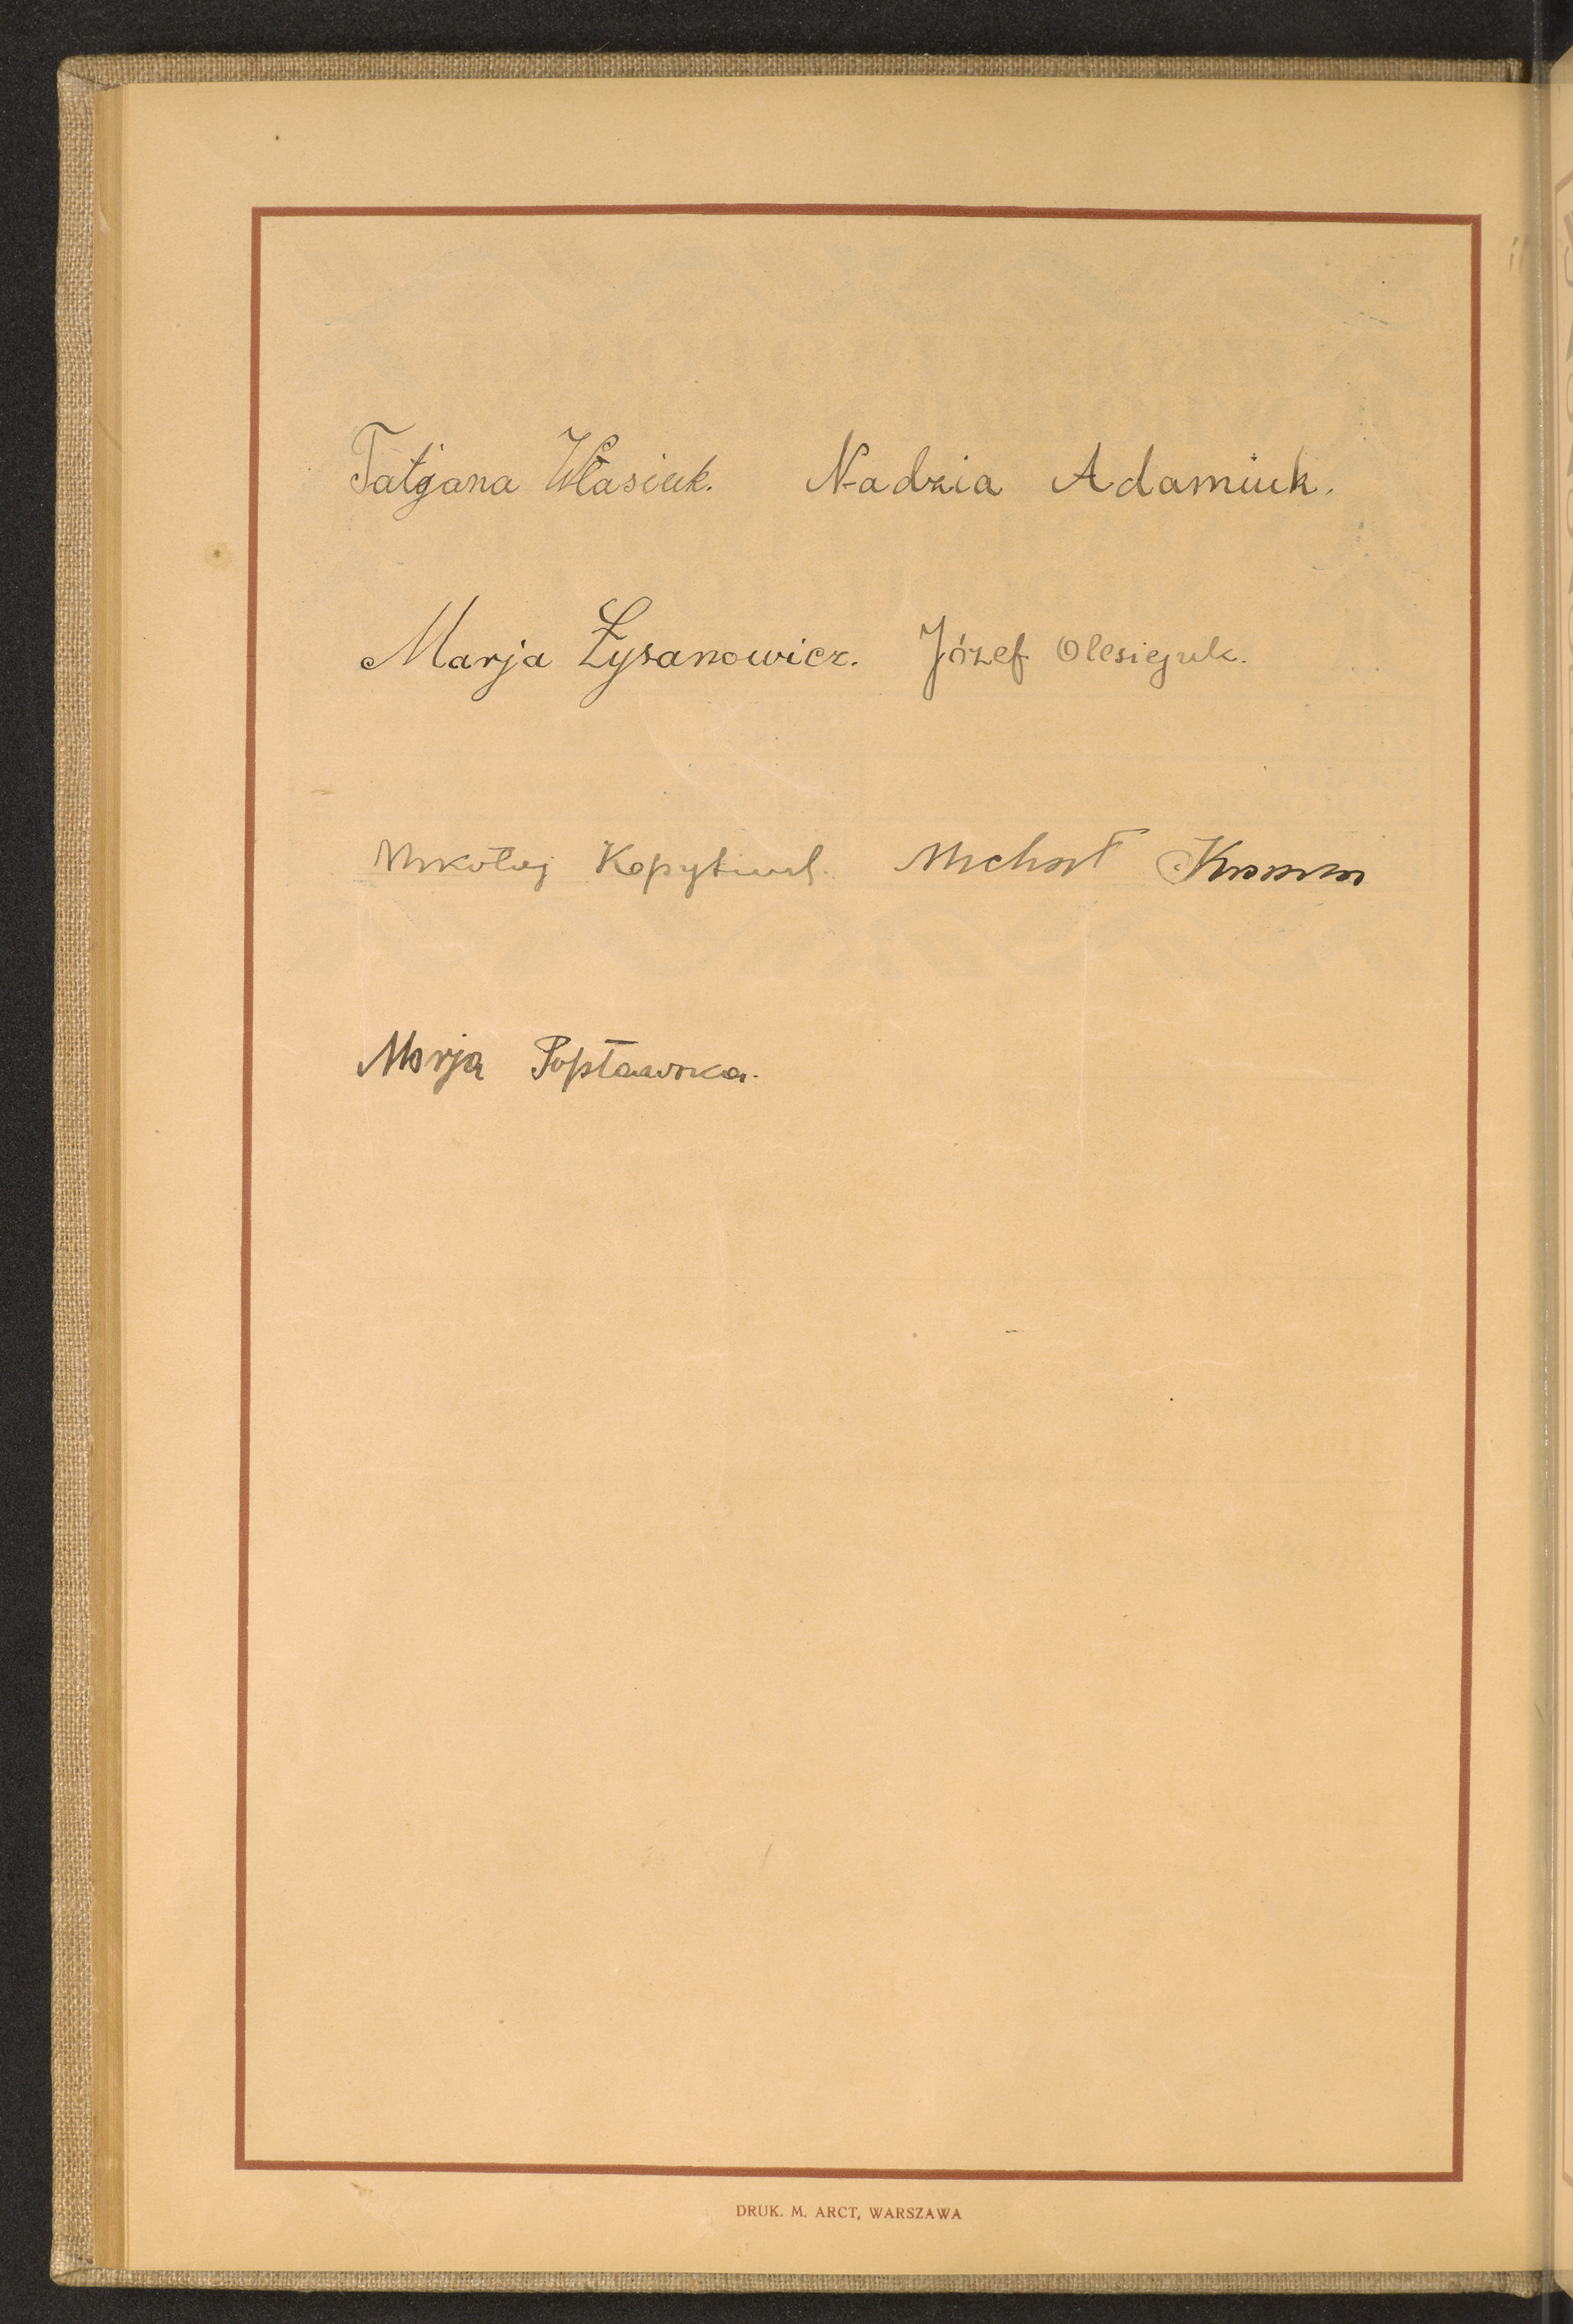 Tatjana Własiuk. Nadzia Adamiuk.
Marja Łysanowicz. Józef Olesiejuk.
Mikołaj Michał
Marja Popławska.
DRUK. M. ARCT, WARSZAWA